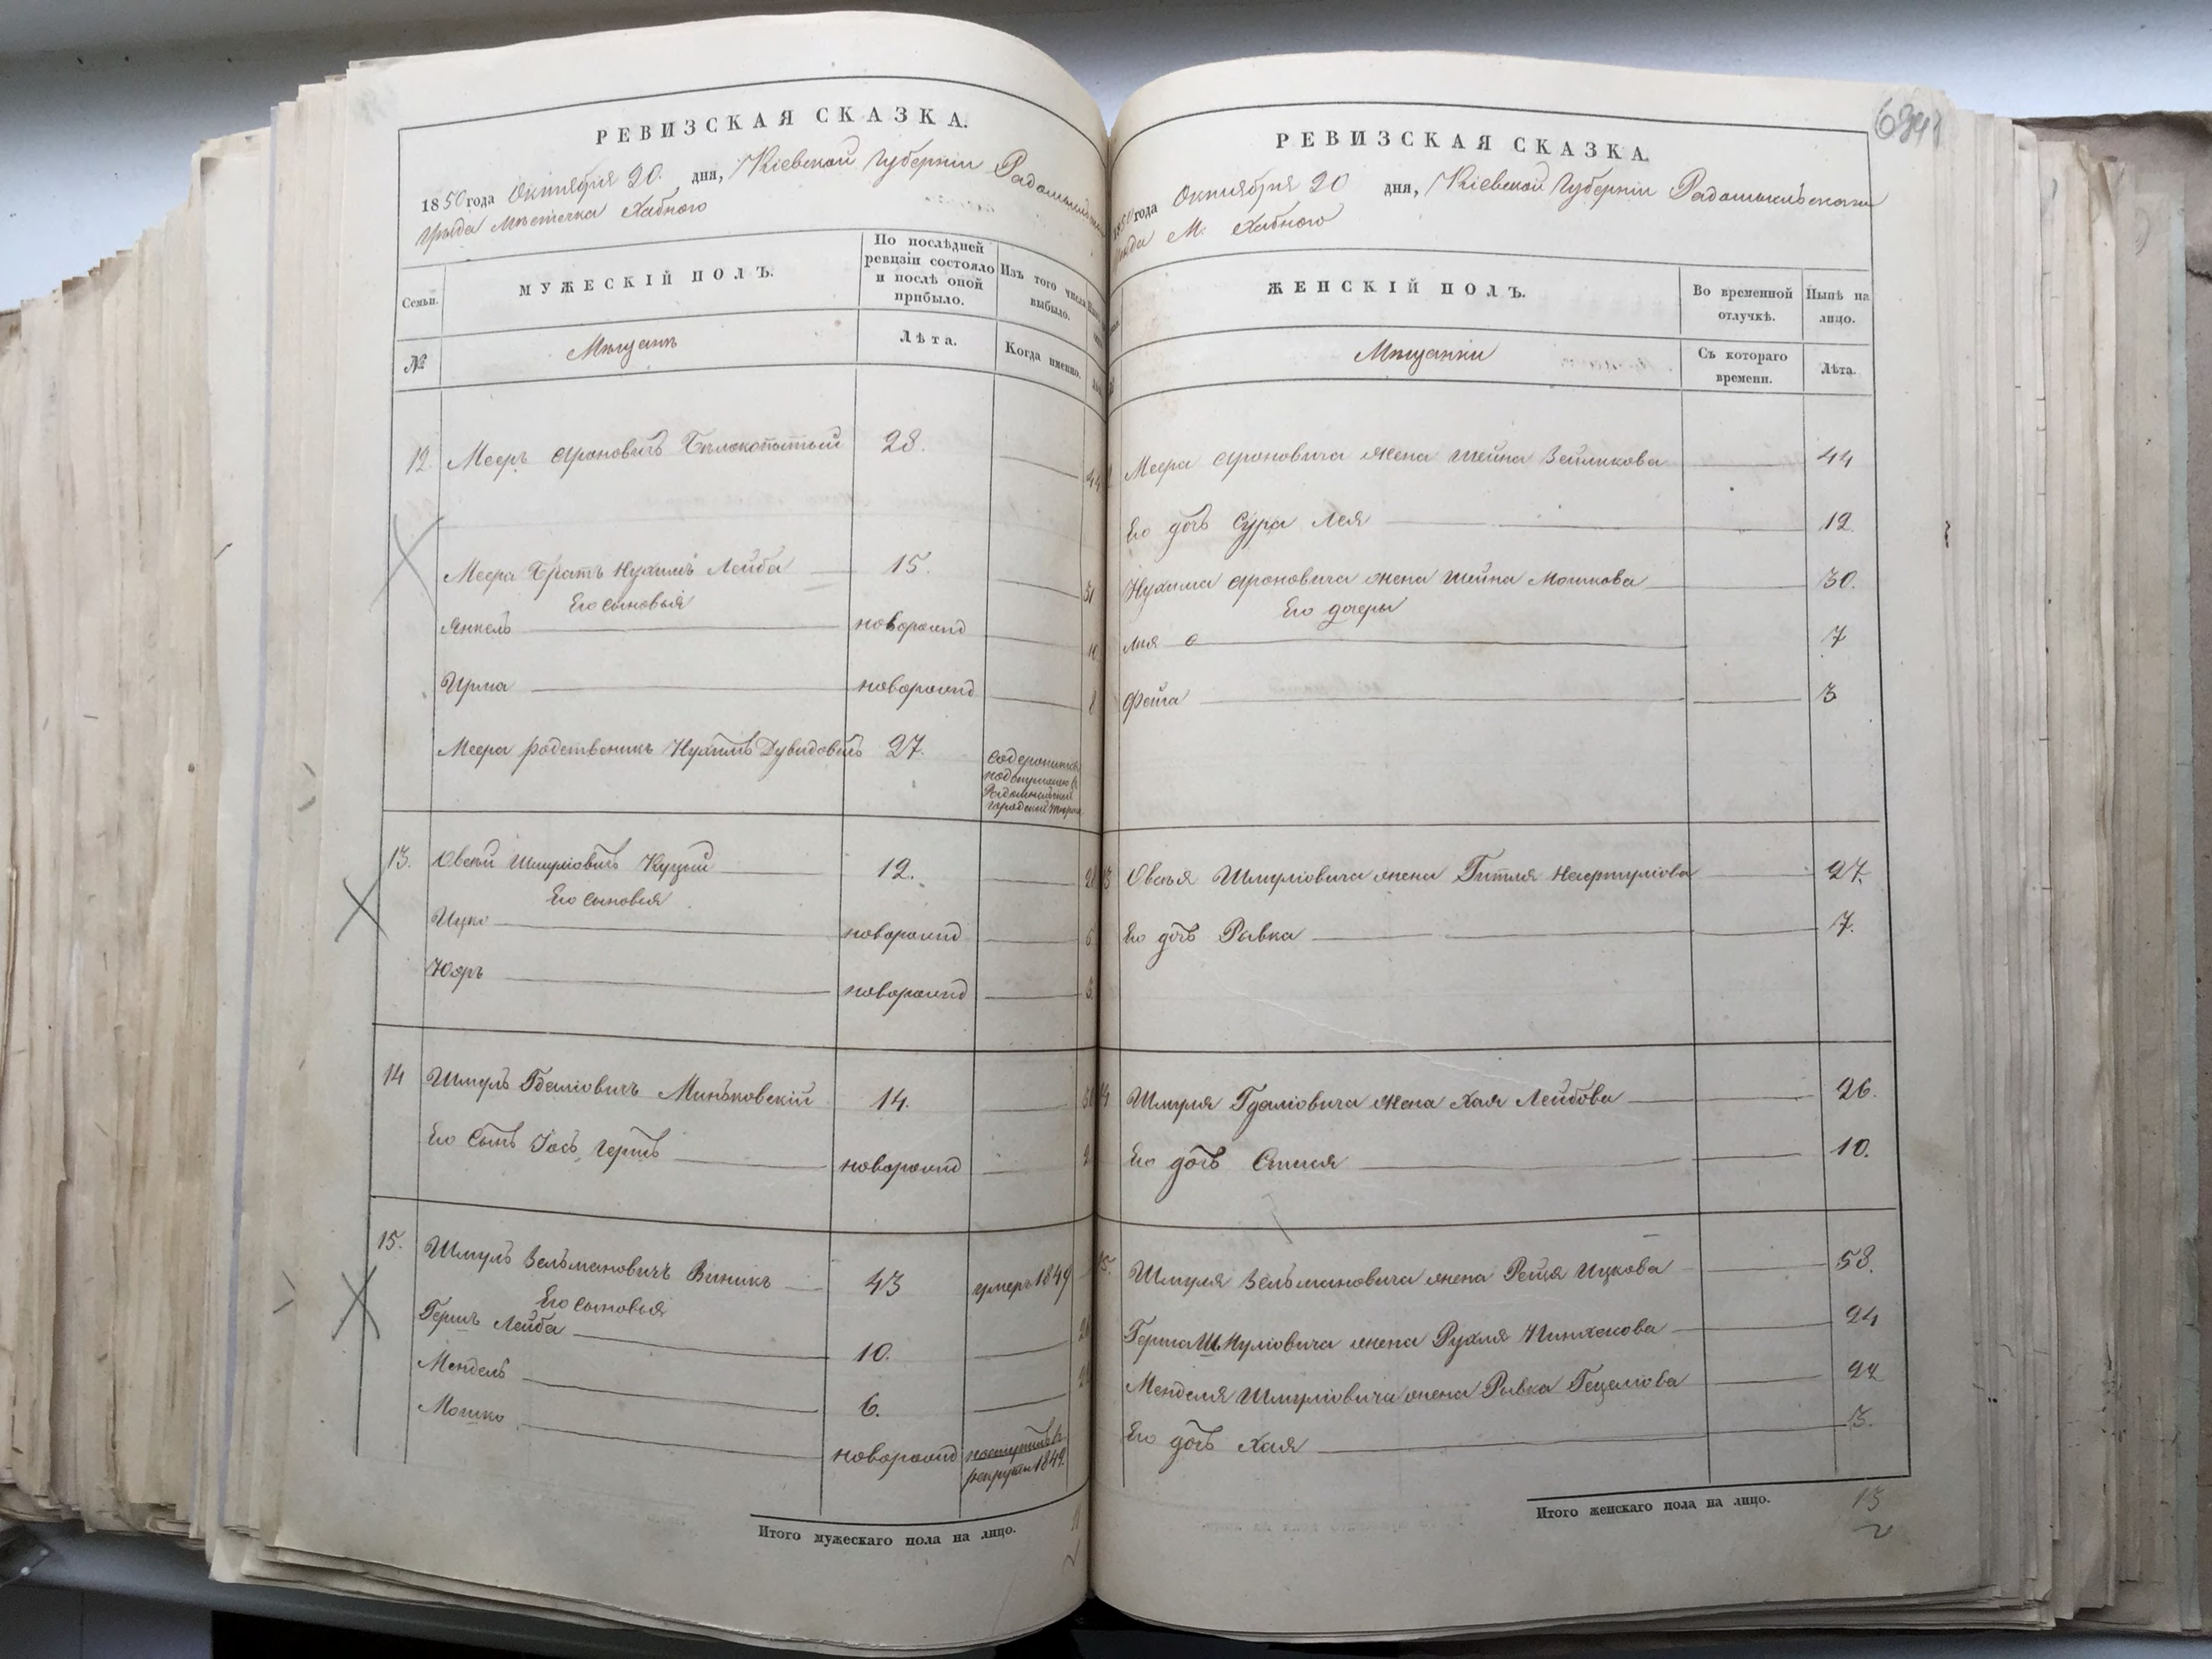 РЕВИЗСКАЯ СКАЗКА.
1850 года Октября 20. дня, Кіевской Губерніи Радомысльскаго
Уѣзда Мѣстечка Хабного
Семьи.
МУЖЕСКІЙ ПОЛЪ.
По послѣдней
ревизіи состояло
и послѣ оной
прибыло.
Изъ того числа
выбыло.
№
Мѣщанъ
Лѣта.
Когда именно.
12. Мееръ Ароновичъ Бѣлокопытый 28. 44
Меера Братъ Нухимъ Лейба 15. 31
Его сыновья
Янкель новорожд
Ирма новорожд 8
Меера родственикъ Нухимъ Дувидовичъ 27. содержится
подстражею въ
Радомысльской
городской тюрмѣ
13. Овсѣй Шмуліовичъ Куцый 12.
Его сыновья
Ицко новорожд
новорожд
14 Шмуль Гдаліовичъ Миньковскій 14.
Его Сынъ Іось Гершъ новорожд
15. Шмуль Зельмановичъ Винникъ 43 умеръ 1849
Его сыновья
Гершъ Лейба 10.
Мендель 6.
Мошко новорожд поступилъ въ
рекруты 1849.
Итого мужескаго пола на лицо. 11
РЕВИЗСКАЯ СКАЗКА.
1850 года Октября 20 дня, Кіевской Губерніи Радомысльскаго
Уѣзда М. Хабного
ЖЕНСКІЙ ПОЛЪ.
Во временной
отлучкѣ.
Нынѣ на
лицо.
Мѣщанки
Съ котораго
времени.
Лѣта.
Меера Ароновича жена Шейна Зейликова 44
Его дочь Сура Лея 12.
Нухима Ароновича жена Шейна Мошкова 30.
Его дочеры
Лия 7
Фейга 3
13 Овсѣя Шмуліовича жена Гитля 27.
Его дочь Рывка 7.
14 Шмуля Гдаліовича жена Хая Лейбова 26.
Его дочь 10.
15. Шмуля Зельмановича жена Рейзя Ицкова 58.
Герша Шмуліовича жена Рухля Пинхасова 24
Менделя Шмуліовича жена Рывка Гецеліова 22
Его дочь Хая 3.
Итого женскаго пола на лицо. 13